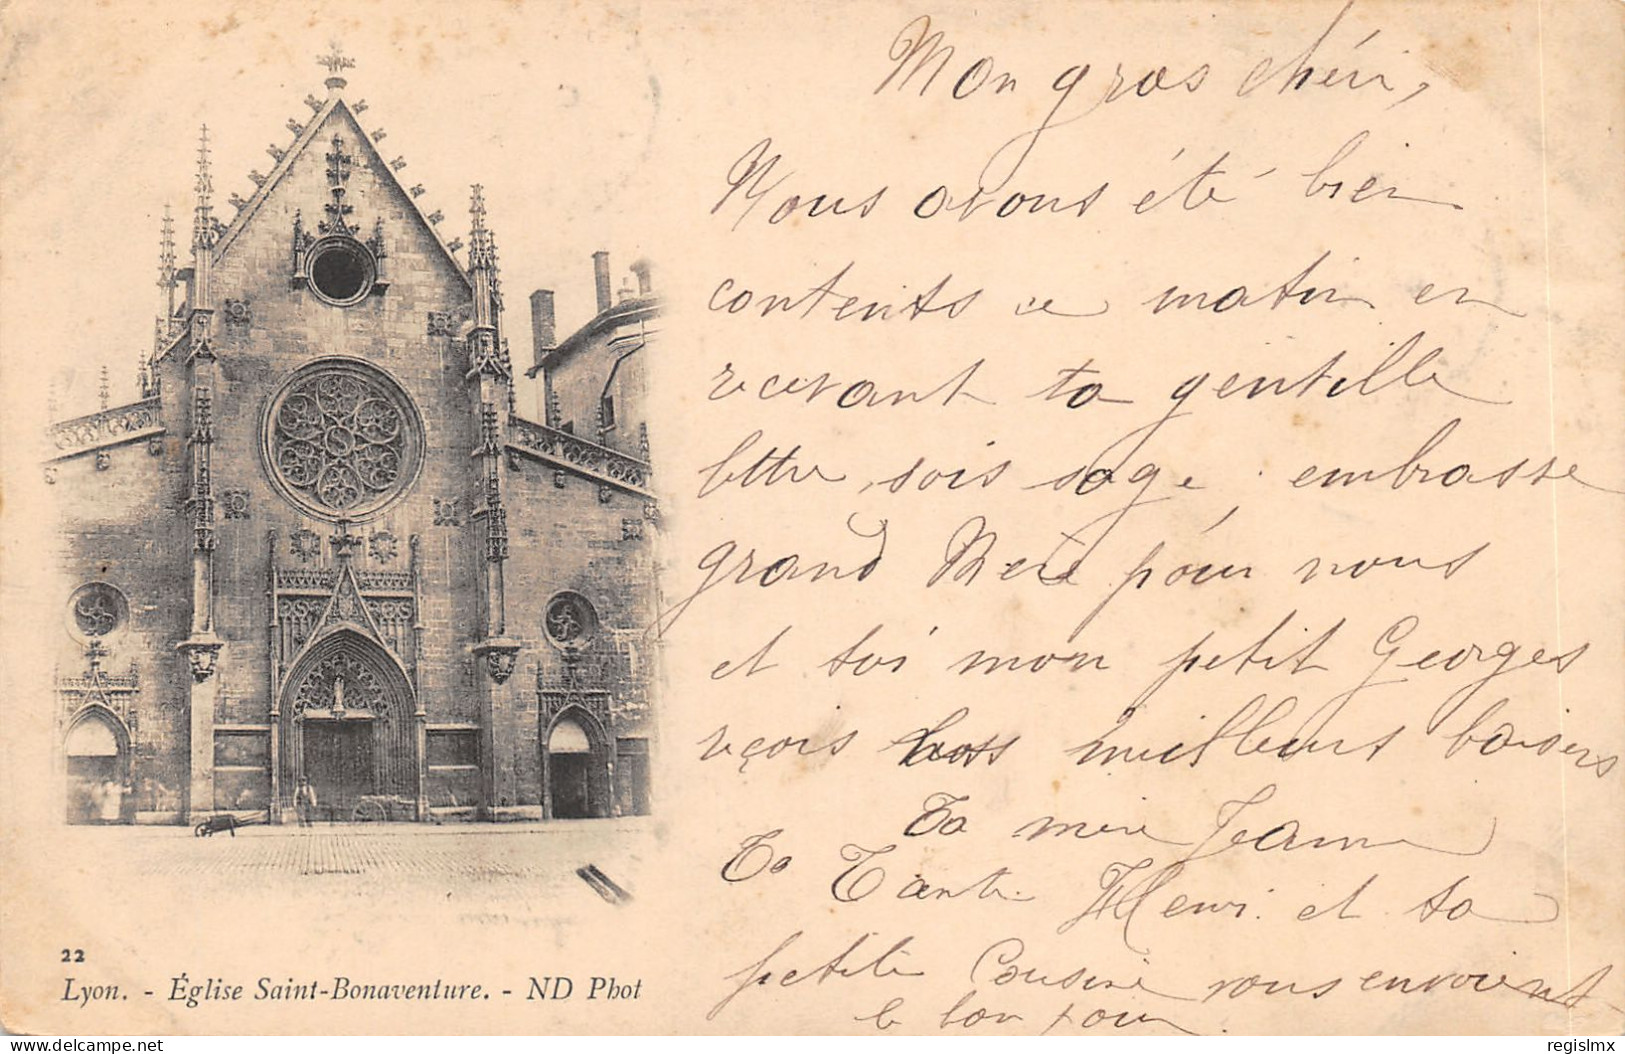 Mon gros chéri,
Nous avons été bien
contents ce matin en
recevant ta gentille
lettre, sois sage. embrasse
grand Mère pour nous
et toi mon petit Georges
reçois nos meilleurs baisers
Ta mère Jeanne
Ta Tante Henri. et ta
petite Cousine vous envoient
le bonjour.
22
Lyon. - Église Saint-Bonaventure. - ND Phot
www.delcampe.net
regislmx